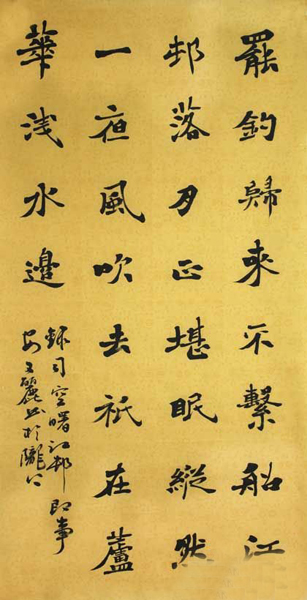 罷釣歸來不繫船江
邨落月正堪眠縱然
一夜風吹去祇在蘆
華浅水邊
録司空曙江邨即事
麗书於隴上